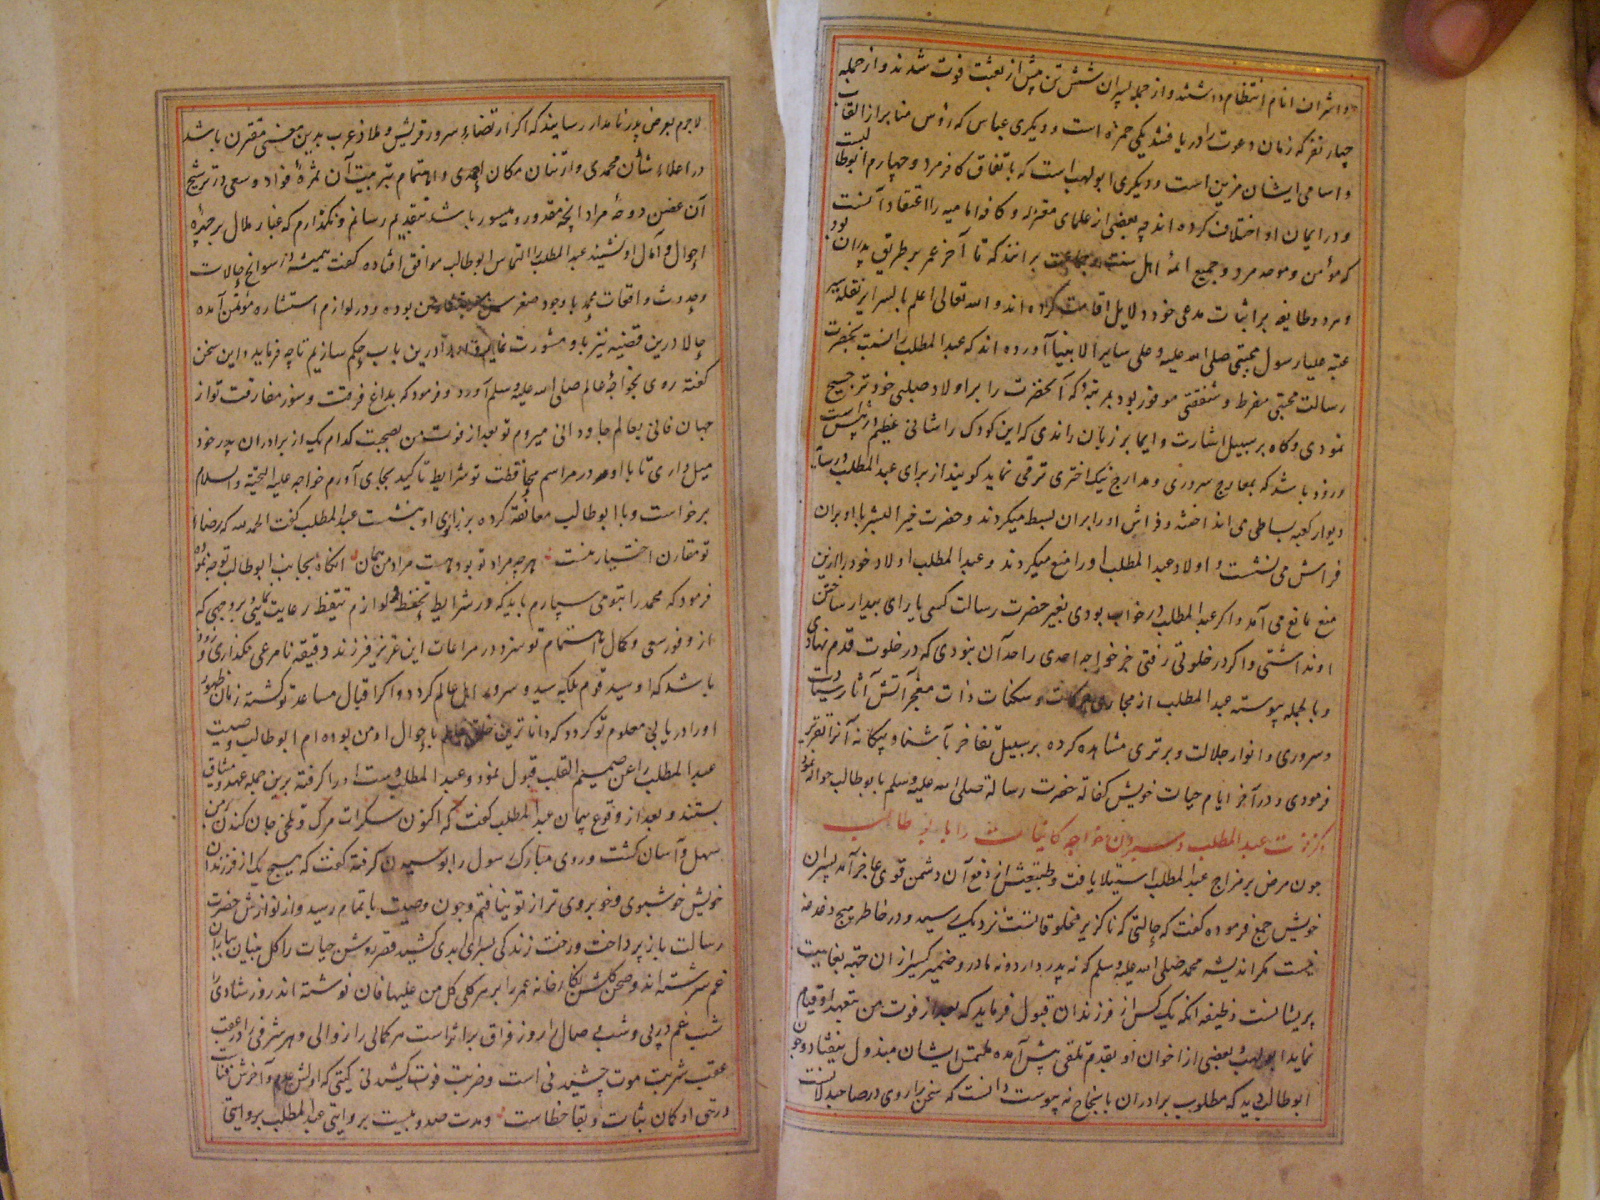 واشراف انام انتظام داشتند و از جمله پسران شش تن پیش از بعثت فوت شدند و از جمله
چهار نفر که زمان دعوت را دریافتند یکی حمزه است و دیگری عباس که رؤس منابر از القاب
و اسامی ایشان مزین است و دیگری ابولهب است که باتفاق کافر مرد و چهارم ابوطالبست
و در ایمان او اختلاف کرده اند چه بعضی از علمای معتزله و کافه امامیه را اعتقاد آنست
که مؤمن و موحد مرد و جمیع ائمهٔ اهل سنت وجماعت برانند که تا آخر عمر بر طریق پدران بود
و هر دو طایفه بر اثبات مدعی خود دلایل اقامت کرده اند و الله تعالی اعلم بالسرایر نقلهٔ سیر
عتبه علیا رسول مجتبی صلی الله علیه و علی سایر الانبیا آورده اند که عبدالمطلب را نسبت بحضرت
رسالت محبتی مفرط و شفقتی موفور بود بمرتبهٔ که آنحضرت را بر اولاد صلبی خود ترجیح
نمودی و گاه بر سبیل اشارت و ایما بر زبان راندی که این کودک را شانی عظیم در پیش است
و زود باشد که بمعارج سروری و مدارج نیک اختری ترقی نماید گویند از برای عبدالمطلب در سایه
دیوار کعبه بساطی می انداختند و فراش او را بران بسط میکردند و حضرت خیر البشر با او بران
فراش می نشست و اولاد عبدالمطلب او را منع میکردند و عبدالمطلب اولاد خود را ازین
منع مانع می آمد و اگر عبدالمطلب در خواب بودی بغیر حضرت رسالت کسی یارای بیدار ساختن
او نداشتی و اگر در خلوتی رفتی جز خواجه احدی را حد آن نبودی که در خلوت قدم نهادی
و بالجمله پیوسته عبدالمطلب از مجاری حرکات و سکنات ذات معجز آتش آثار سیادت
و سروری و انوار جلالت و برتری مشاهده کرده بر سبیل تفاخر با آشنا و بیگانه آنرا تقریر
فرمودی و در آخر ایام حیات خویش کفالة حضرت رسالة صلی الله علیه و سلم بابوطالب حواله نمود
ذکر فوت عبدالمطلب و سپردن خواجه کاینات را بابوطالب
چون مرض بر مزاج عبدالمطلب استیلا یافت و طبیعتش از دفع آن دشمن قوی عاجز آمد پسران
خویش جمع فرموده گفت که حالتی که ناگزیر مخلوقاتست نزدیک رسید و در خاطر هیچ دغدغه
نیست مگر اندیشه محمد صلی الله علیه وسلم که نه پدر دارد و نه مادر و ضمیر کسیر ازان جهة بغایت
پریشانست وظیفه آنکه یک کس از فرزندان قبول فرماید که بعد از فوت من بتعهد او قیام
نماید ابولهب و بعضی از اخوان او بقدم تلقی پیش آمده ملتمس ایشان مبذول نیفتاد و چون
ابوطالب دید که مطلوب برادران بانجاح نه پیوست دانست که سخن را روی در صاحبدلانست
لاجرم بعرض پدر نامدار رسانید که اگر ارتضاء سرور قریش و ملاذ عرب بدین معنی مقرن باشد
در اعلاء شأن محمدی و ارتفاع مکان احمدی و اهتمام بتربیت آن ثمرهٔ فواد و سعی در ترشیح
آن غصن دوحهٔ مراد انچه مقدور و میسور باشد بتقدیم رسانم و نگذارم که غبار ملال بر چهرهٔ
احوال و آمال او نشیند عبدالمطلب را التماس ابوطالب موافق افتاده گفت همیشه در سوانح حالات
و حدوث واقعات محمد با وجود صغر سن من بوده و در لوازم استشاره مؤتمن آمده
حالا درین قضیه نیز با او مشورت نمایم و او را درین باب حکم سازیم تا چه فرماید و این سخن
گفته روی بخواجهٔ عالم صلی الله علیه وسلم آورد و فرمود که بداغ فرقت و سوز مفارقت تو از
جهان فانی بعالم جاودانی میروم تو بعد از فوت من بصحبت کدام یک از برادران پدر خود
میل داری تا با او در مراسم محافظت تو شرایط تاکید بجای آورم خواجه علیه التحیة و السلام
برخواست و با ابوطالب معانقه کرده بر زانوی او بنشست عبدالمطلب گفت الحمدلله که رضاء
تو مقارن اختیار منست هرچه مراد تو بود هست مراد من همان آنگاه بجانب ابوطالب توجه نموده
فرمود که محمد را بتو می سپارم باید که در شرایط تحفظ و لوازم تیقظ رعایت نمائی بر وجهی که
از وفور سعی و کمال اهتمام تو سزد در مراعات این عزیز فرزند دقیقه نامرعی نگذاری زود
باشد که او سید قوم بلکه سید و سرور اهل عالم گردد و اگر اقبال مساعد تو گشته زمان ظهور
او را دریابی معلوم تو گردد که داناترین خلق عالم باحوال او من بوده ام ابوطالب وصیت
عبدالمطلب را عن صمیم القلب قبول نمود و عبدالمطلب دست او را گرفته برین جمله عهد و میثاق
بستند و بعد از وقوع پیمان عبدالمطلب گفت که اکنون سکرات مرگ و تلخی جان کندن بر من
سهل و آسان گشت و روی مبارک رسول را بوسیدن گرفته گفت که هیچ یک از فرزندان
خویش خوشبوی و خوبروی تر از تو نیافتم و چون وصیت باتمام رسید و از نوازش حضرت
رسالت باز پرداخت و رخت زندگی بسرای ابدی کشید قصر روشن حیات را گل بنیان بباران
غم سرشته اند و صحن گلشن نگارخانه عمر را بر سرگل کل من علیها فان نوشته اند روز شادی را
شب غم در پی و شب وصال را روز فراق برائر است هر کمالی را زوالی و هر شرفی را در عقب
عقب شربت موت چشیدنی است و ضربت فوت کشیدنی گیتی که اولش عدم و آخرش فناست
در حق او گمان ثبات و بقا خطاست و مدت صد و بیست بروایتی عبدالمطلب بروایتی